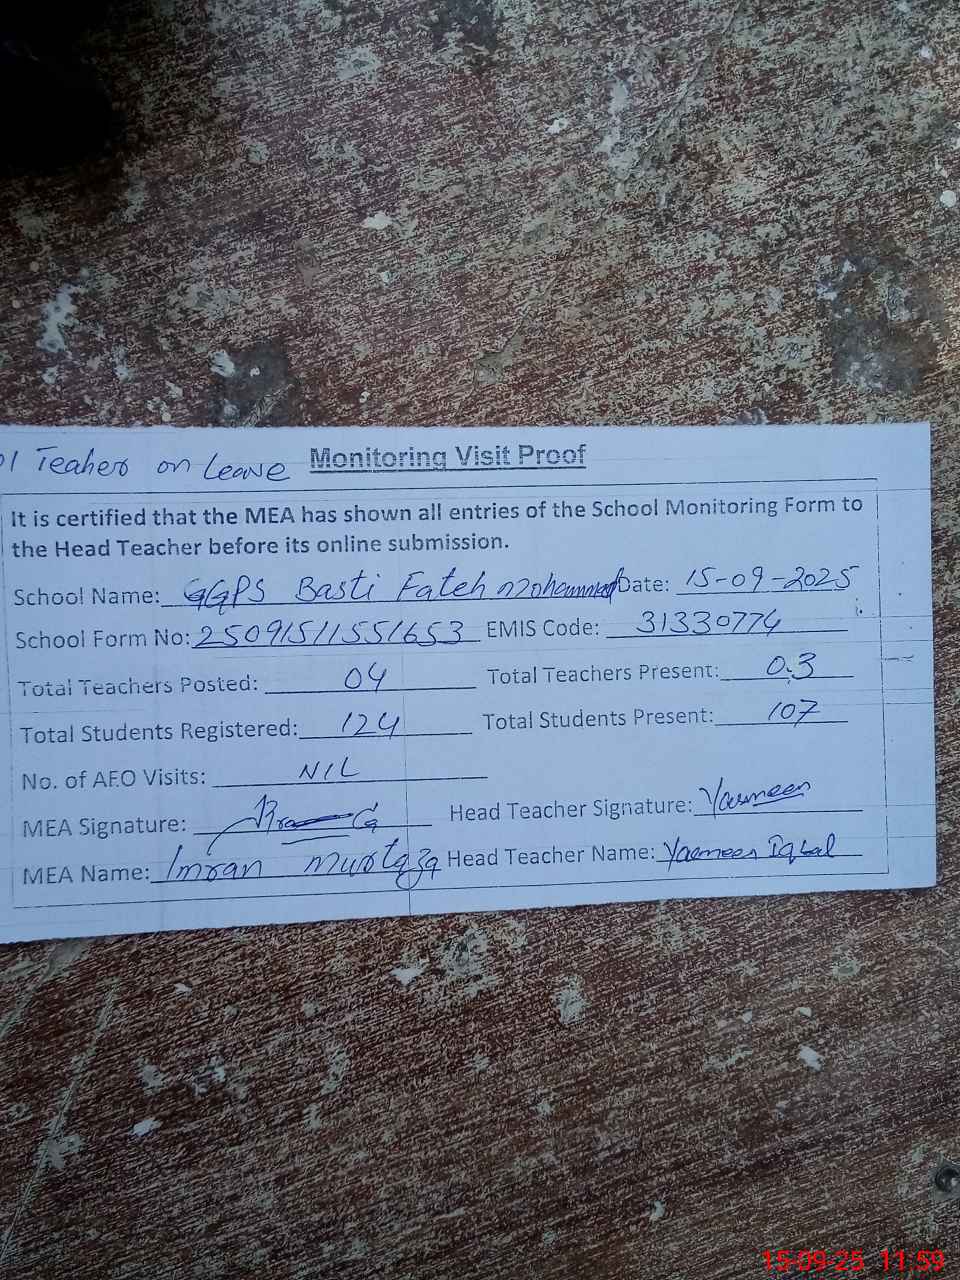 01 Teaher on Leave Monitoring Visit Proof
It is certified that the MEA has shown all entries of the School Monitoring Form to
the Head Teacher before its online submission.
School Name: GGPS Basti Fateh Mohammad Date: 15-09-2025
School Form No: 25091511551653 EMIS Code: 31330774
Total Teachers Posted: 04 Total Teachers Present: 03
Total Students Registered: 124 Total Students Present: 107
No. of AEO Visits: NIL
MEA Signature: Head Teacher Signature: Yasmeen
MEA Name: Imran Murtaza Head Teacher Name: Yasmeen Iqbal
15-09-25 11:59